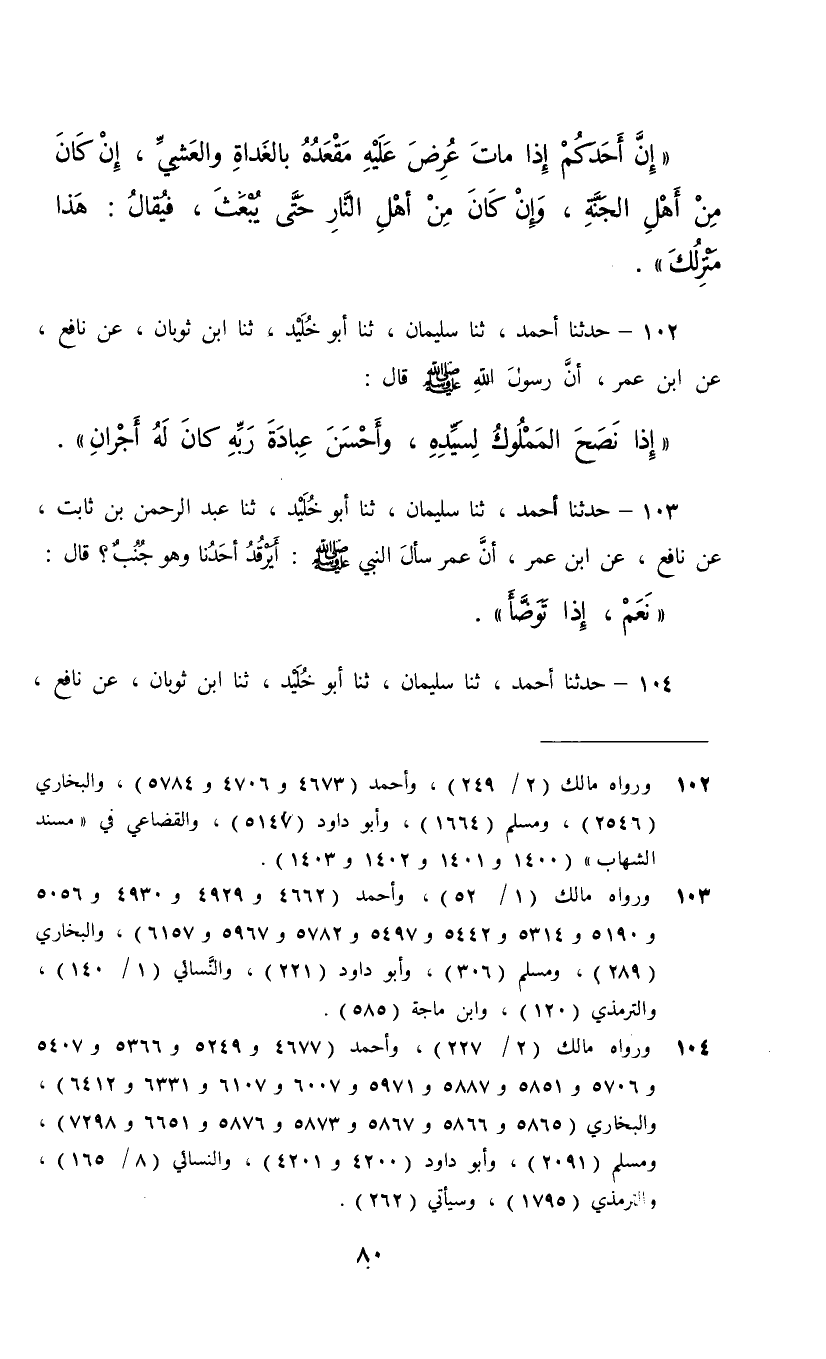 « إِنَّ أَحَدَكُمْ إِذا ماتَ عُرِضَ عَلَيْهِ مَقْعَدُهُ بالغَداةِ والعَشِيِّ ، إِنْ كَانَ
مِنْ أَهْلِ الجَنَّةِ ، وَإِنْ كَانَ مِنْ أهْلِ النَّارِ حَتَّى يُبْعَثَ ، فَيُقالُ : هَذا
مَنْزِلُكَ » .
١٠٢ – حدثنا أحمد ، ثنا سليمان ، ثنا أبو خُلَيْد ، ثنا ابن ثوبان ، عن نافع ،
عن ابن عمر ، أنَّ رسولَ اللهِ ﷺ قال :
« إِذا نَصَحَ المَمْلُوكُ لِسَيِّدِهِ ، وأَحْسَنَ عِبادَةَ رَبِّهِ كانَ لَهُ أَجْرانِ » .
١٠٣ – حدثنا أحمد ، ثنا سليمان ، ثنا أبو خُلَيْد ، ثنا عبد الرحمن بن ثابت ،
عن نافع ، عن ابن عمر ، أنَّ عمر سألَ النبي ﷺ : أَيَرْقُدُ أحَدُنا وهو جُنُبٌ ؟ قال :
« نَعَمْ ، إِذا تَوَضَّأَ » .
١٠٤ – حدثنا أحمد ، ثنا سليمان ، ثنا أبو خُلَيْد ، ثنا ابن ثوبان ، عن نافع ،
١٠٢ ورواه مالك ( ٢ / ٢٤٩ ) ، وأحمد ( ٤٦٧٣ و ٤٧٠٦ و ٥٧٨٤ ) ، والبخاري
( ٢٥٤٦ ) ، ومسلم ( ١٦٦٤ ) ، وأبو داود ( ٥١٤٧ ) ، والقضاعي في « مسند
الشهاب » ( ١٤٠٠ و ١٤٠١ و ١٤٠٢ و ١٤٠٣ ) .
١٠٣ ورواه مالك ( ١ / ٥٢ ) ، وأحمد ( ٤٦٦٢ و ٤٩٢٩ و ٤٩٣٠ و ٥٠٥٦
و ٥١٩٠ و ٥٣١٤ و ٥٤٤٢ و ٥٤٩٧ و ٥٧٨٢ و ٥٩٦٧ و ٦١٥٧ ) ، والبخاري
( ٢٨٩ ) ، ومسلم ( ٣٠٦ ) ، وأبو داود ( ٢٢١ ) ، والنَّسائي ( ١ / ١٤٠ ) ،
والترمذي ( ١٢٠ ) ، وابن ماجة ( ٥٨٥ ) .
١٠٤ ورواه مالك ( ٢ / ٢٢٧ ) ، وأحمد ( ٤٦٧٧ و ٥٢٤٩ و ٥٣٦٦ و ٥٤٠٧
و ٥٧٠٦ و ٥٨٥١ و ٥٨٨٧ و ٥٩٧١ و ٦٠٠٧ و ٦١٠٧ و ٦٣٣١ و ٦٤١٢ ) ،
والبخاري ( ٥٨٦٥ و ٥٨٦٦ و ٥٨٦٧ و ٥٨٧٣ و ٥٨٧٦ و ٦٦٥١ و ٧٢٩٨ ) ،
ومسلم ( ٢٠٩١ ) ، وأبو داود ( ٤٢٠٠ و ٤٢٠١ ) ، والنسائي ( ٨ / ١٦٥ ) ،
والترمذي ( ١٧٩٥ ) ، وسيأتي ( ٢٦٢ ) .
٨٠